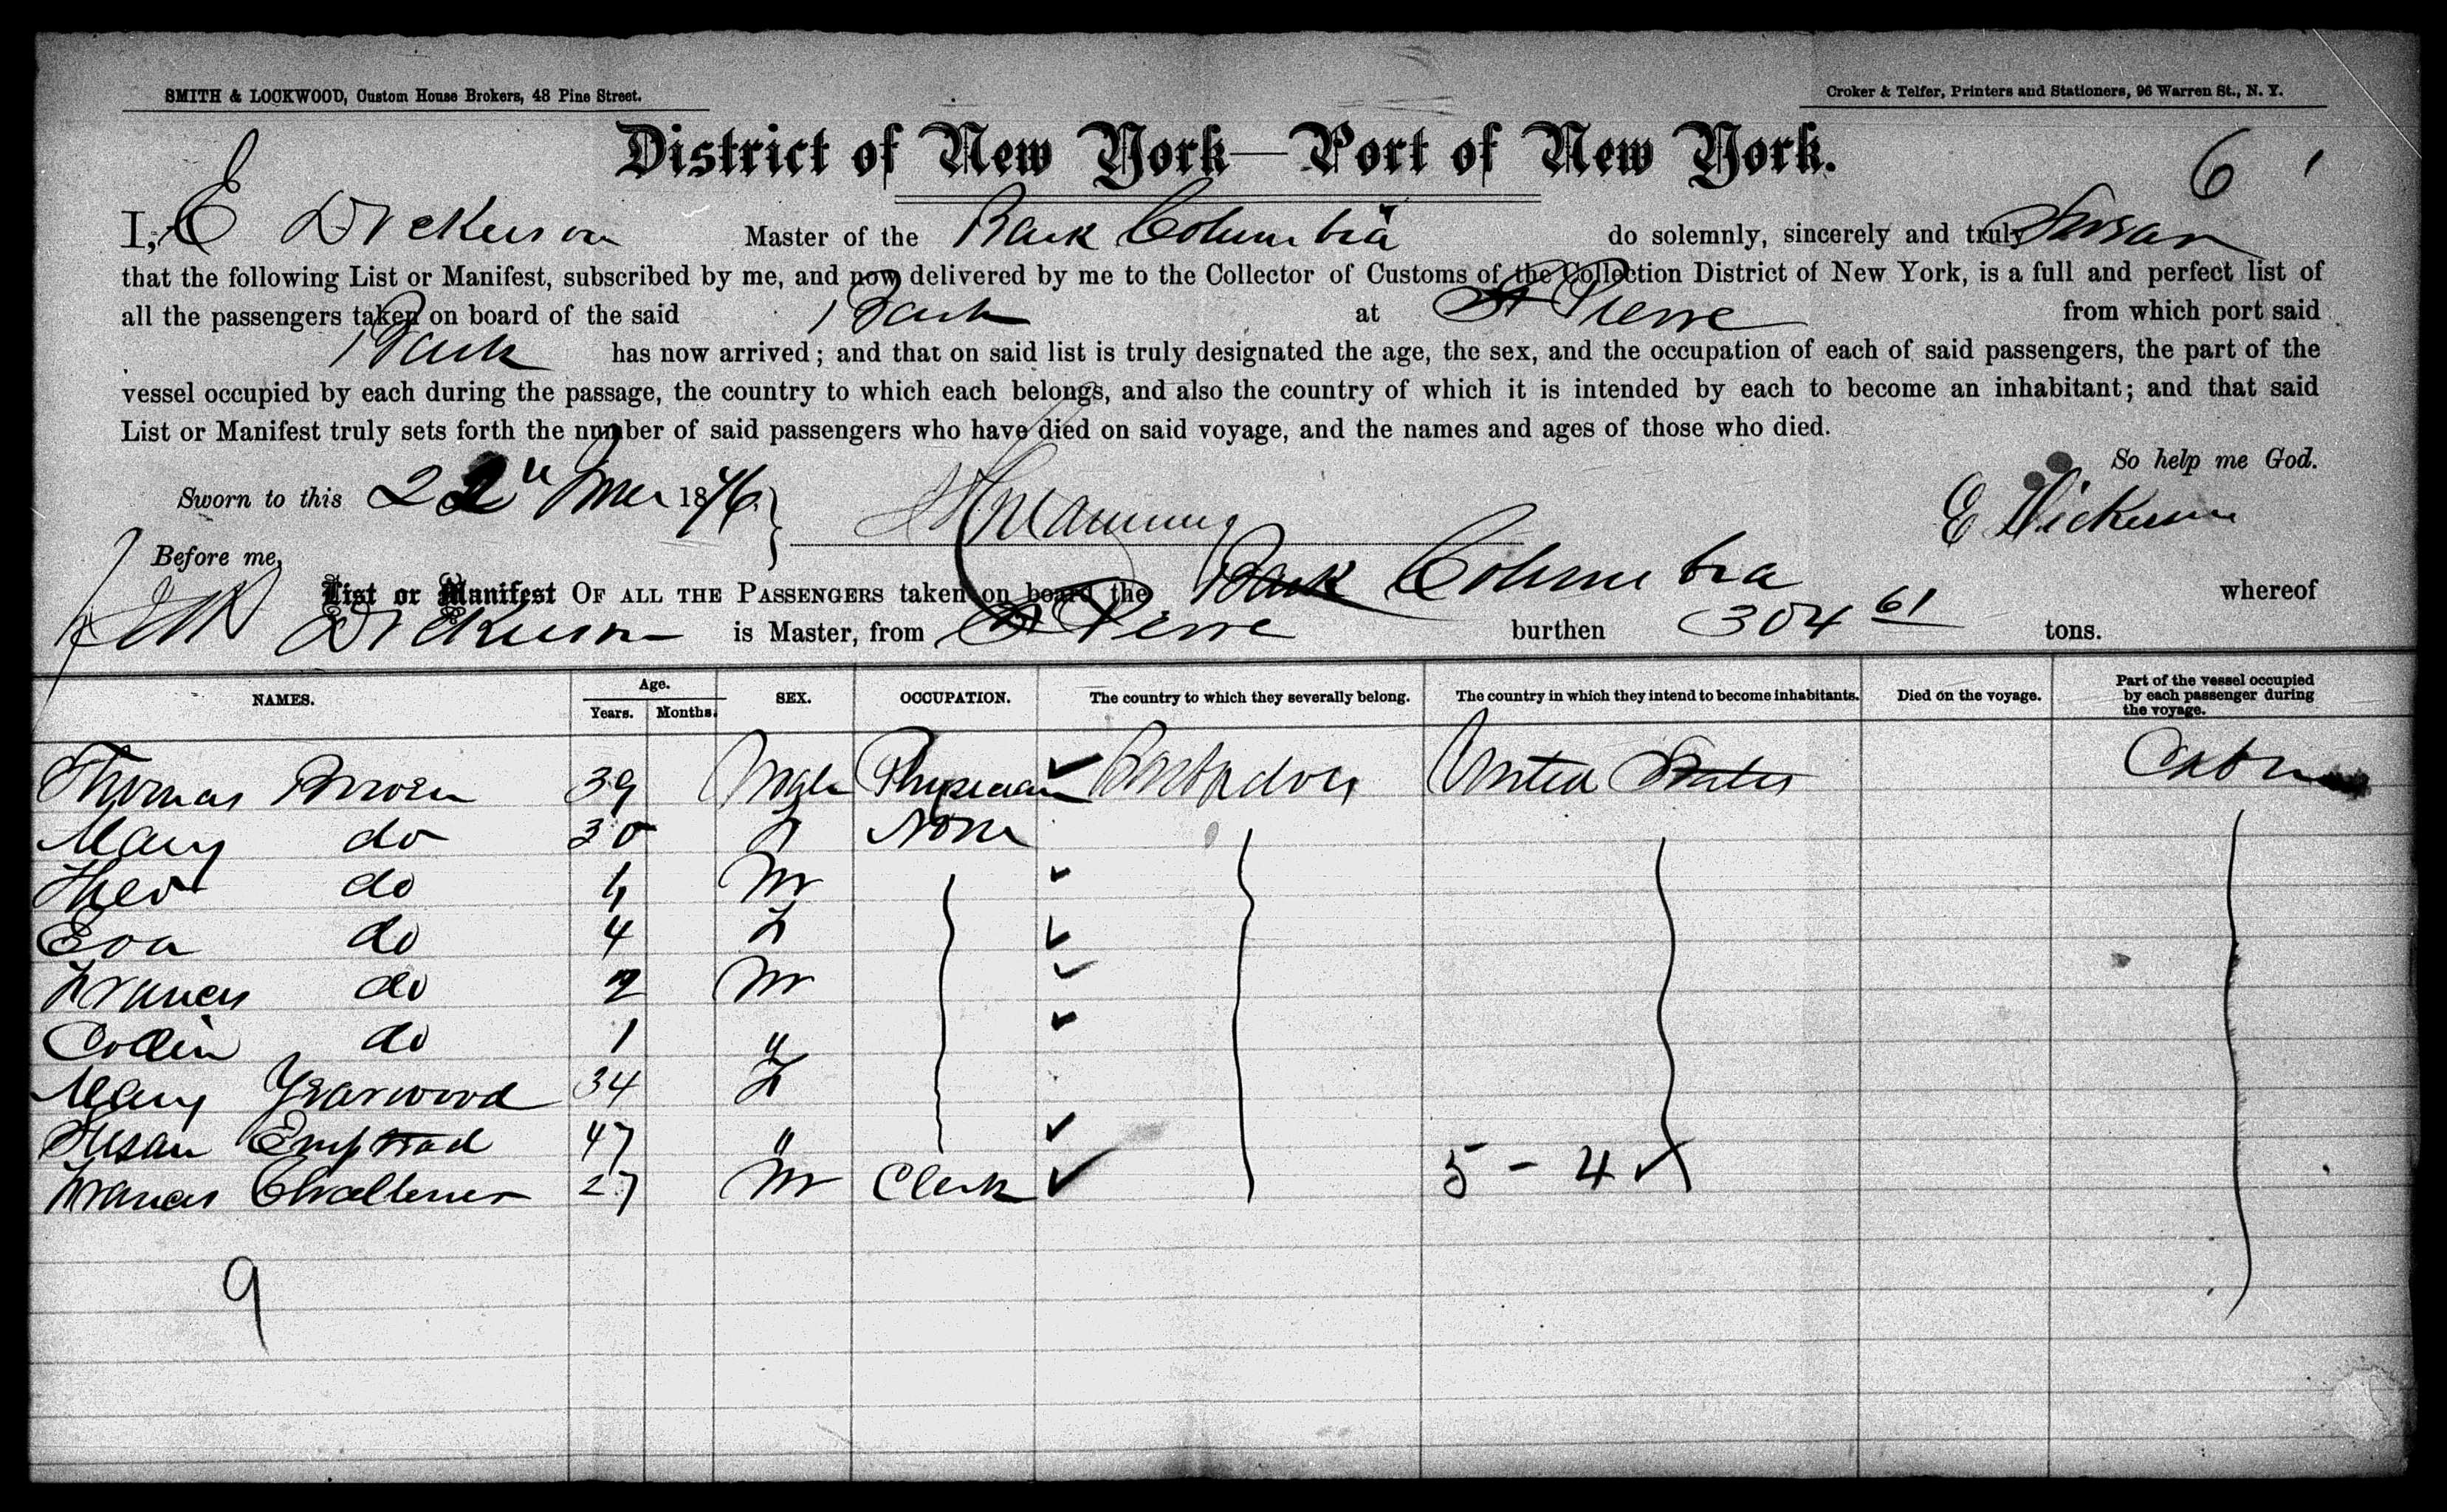 SMITH & LOCKWOOD, Custom House Brokers, 48 Pine Street.
Croker & Telfer, Printers and Stationers, 96 Warren St., N. Y.
District of New York—Port of New York.
6
I, E Dickerson Master of the Bark Columbia do solemnly, sincerely and truly Swear
that the following List or Manifest, subscribed by me, and now delivered by me to the Collector of Customs of the Collection District of New York, is a full and perfect list of
all the passengers taken on board of the said Bark at St Pierre from which port said
Bark has now arrived; and that on said list is truly designated the age, the sex, and the occupation of each of said passengers, the part of the
vessel occupied by each during the passage, the country to which each belongs, and also the country of which it is intended by each to become an inhabitant; and that said
List or Manifest truly sets forth the number of said passengers who have died on said voyage, and the names and ages of those who died.
So help me God.
Sworn to this 22 June 1876 E Dickerson
Before me,
List or Manifest OF ALL THE PASSENGERS taken on board the Bark Columbia whereof
Dickerson is Master, from St Pierre burthen 304 61 tons.
NAMES. Age. Years. Months. SEX. OCCUPATION. The country to which they severally belong. The country in which they intend to become inhabitants. Died on the voyage. Part of the vessel occupied by each passenger during the voyage.
Thomas Brown 39 Male Physician Barbados United States Cabin
Mary do 30 F None
Theo do 6 M
Eva do 4 F
Francis do 2 M
Collin do 1 "
Mary Yearwood 34 F
Susan 47 "
Francis Challenor 27 M Clerk
5 - 4
9